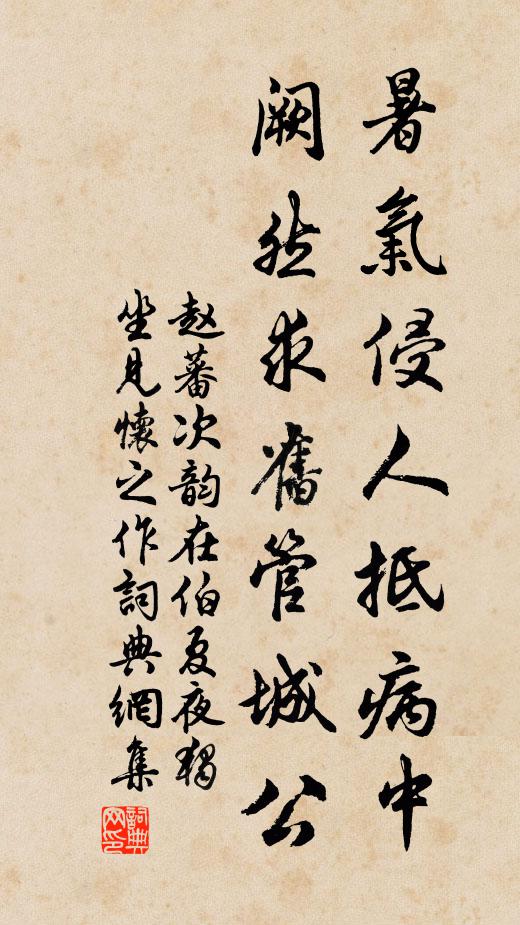 暑氣侵人抵病中
闕然求舊管城公
赵蕃次韵在伯夏夜獨
坐見懷之作詞典網集
詞典
网印